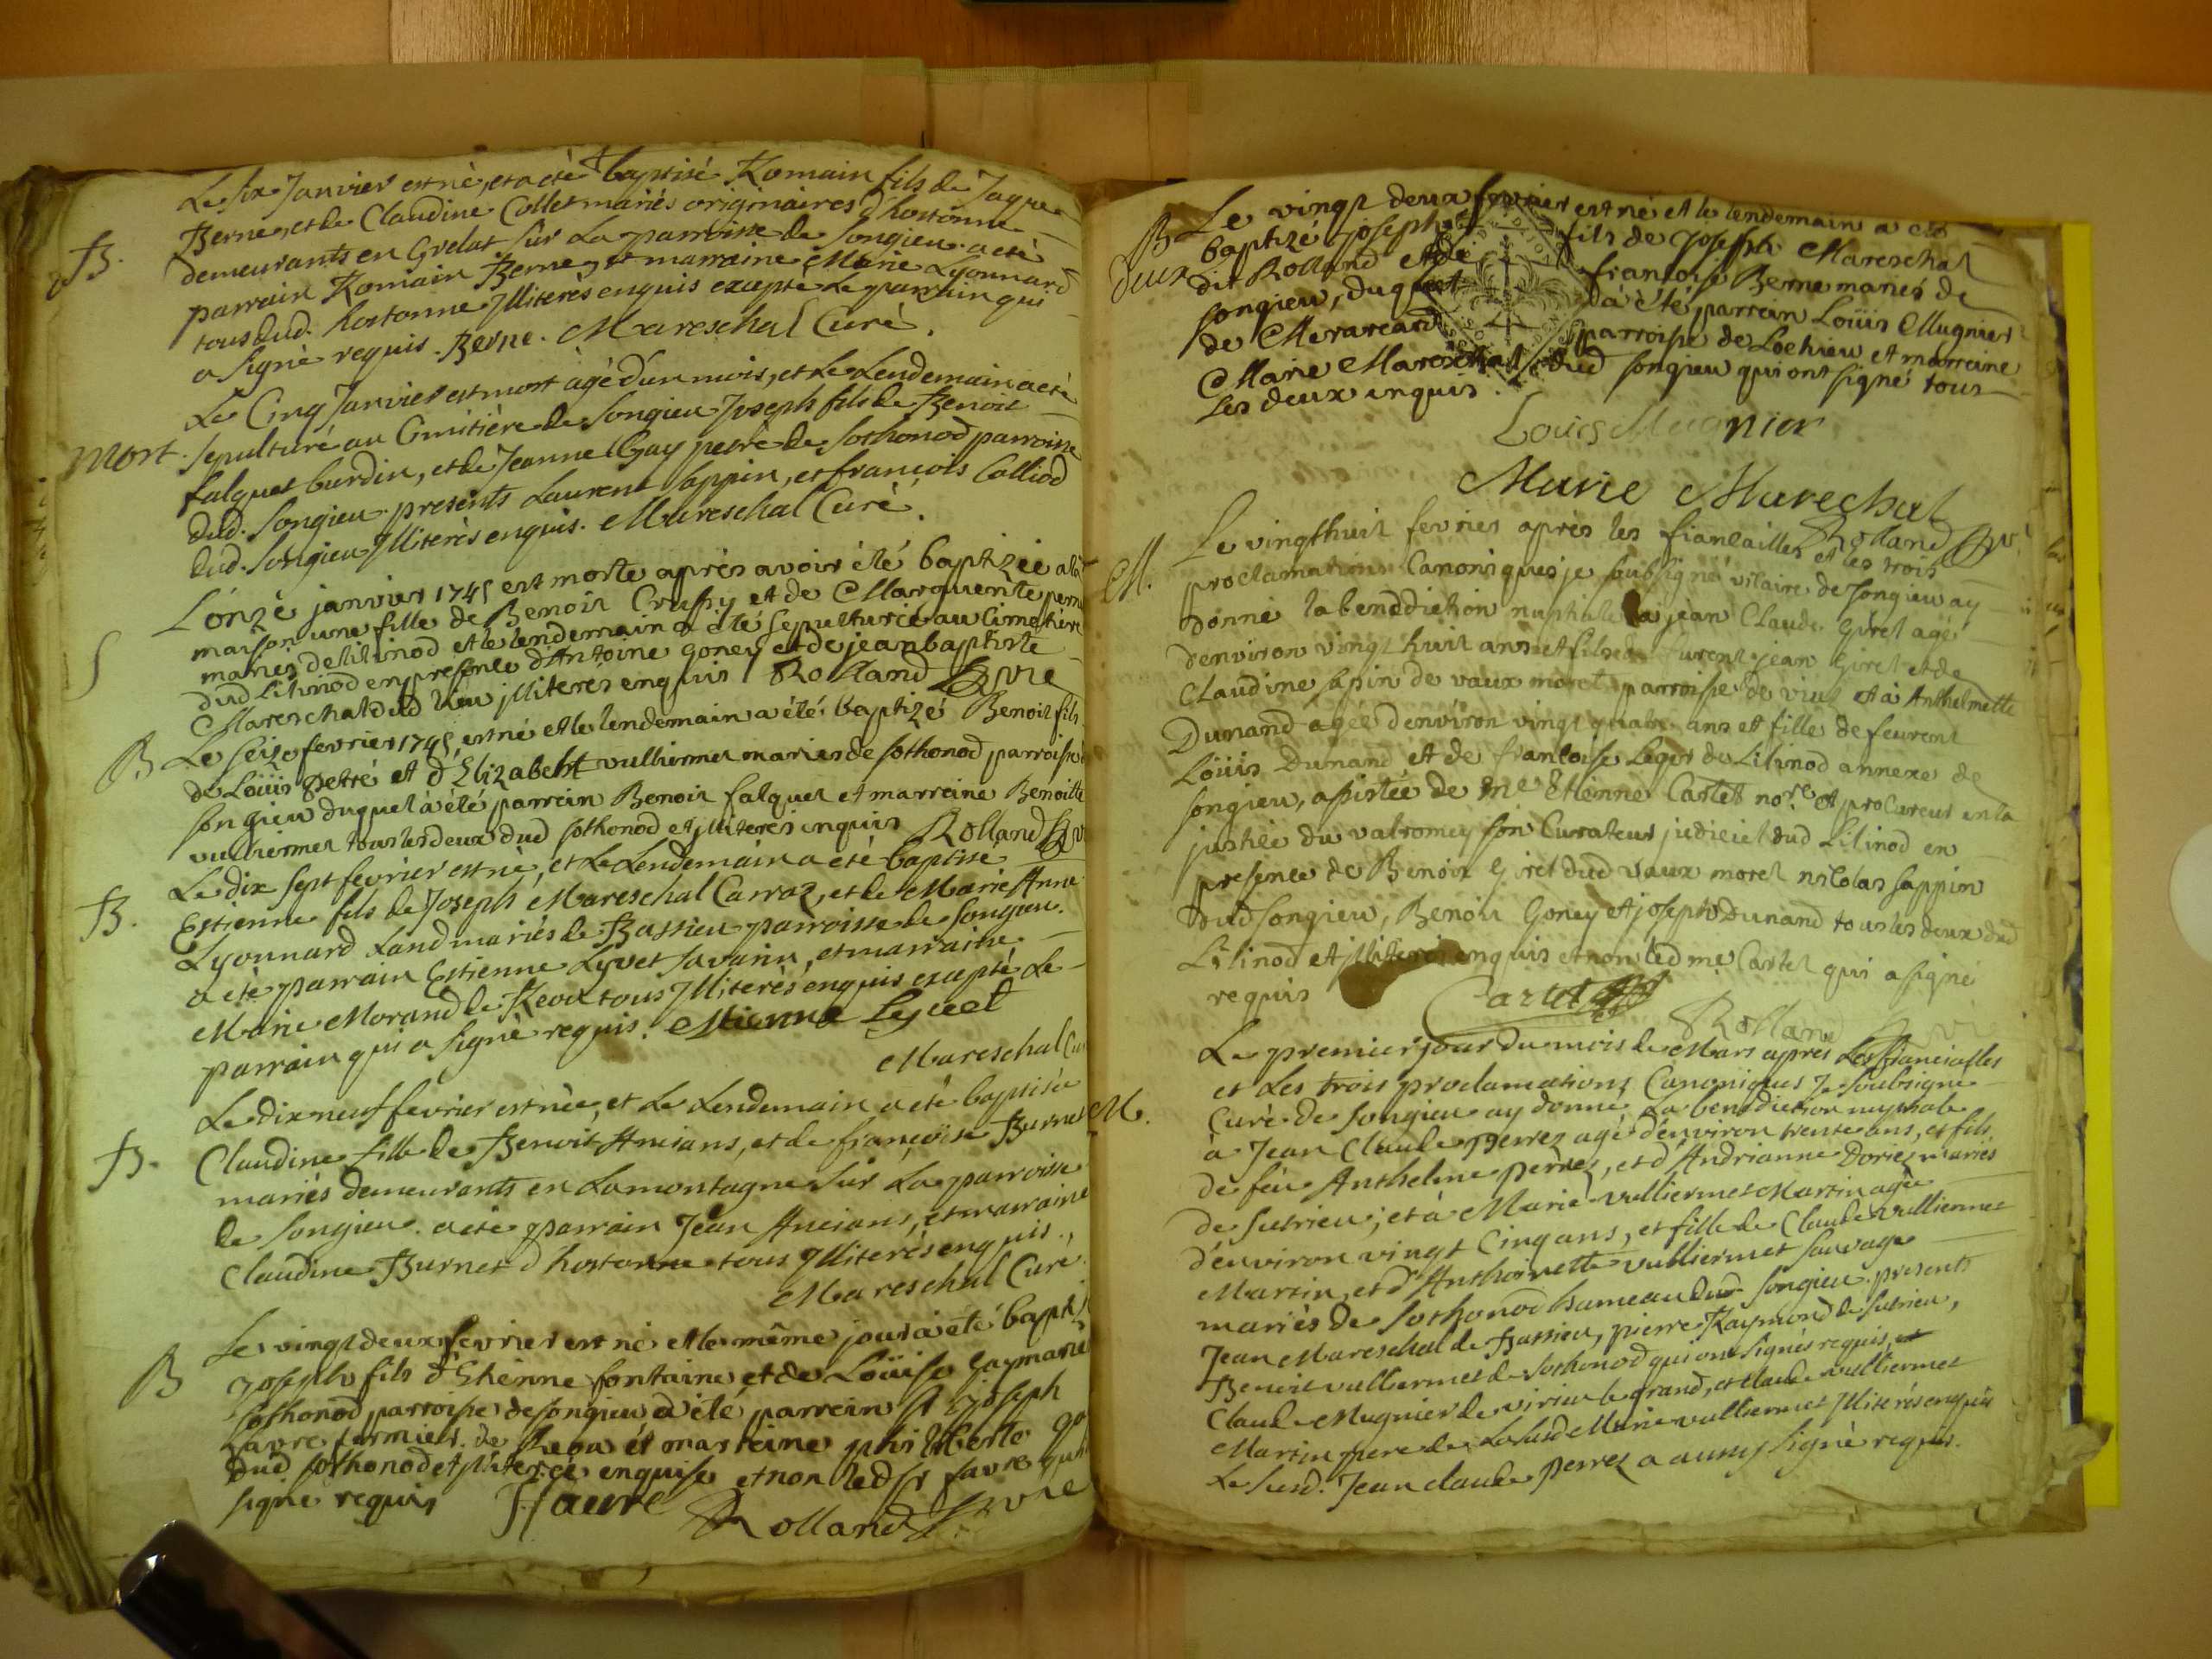 Le six Janvier est nè, et a eté baptisé Romain fils de Jaque
B. Berne, et de Claudine Collet mariés originaires d'hostonne
demeurants en Grelat sur La parroisse de Songieu. a eté
parrain Romain Berne, et marraine Marie Lyonnard
tous dud. hostonne Illiterés enquis excepté Le parrain qui
a signè requis. Berne. Mareschal Curé.
Le Cinq Janvier est mort àgé d'un mois, et Le Lendemain a eté
mort. sepulturé au Cimitière de Songieu Joseph fils de Benoit
falquet burdin, et de Jeanne Gay de Sothonod parroisse
dud. Songieu. presents Laurent Sappin, et françois Calliod
dud. Songieu Illiterés enquis. Mareschal Curé.
L'onze janvier 1745 est morte après avoir été baptizée a la
maison une fille de Benoit et de Marguerite
S mariés de lilinod et le lendemain a été sepulturée au cimetière
dud Lilinod en presence d'Antoine goney et de jean baptiste
Mareschal dud lieu jlliteres enquis Rolland vre
B Le seize fevrier 1745 est né et le lendemain a été baptizé Benoit fils
de Loüis Petré et d'Elizabeht vulliermet mariés de sothonod parroisse
songieu duquel a été parrein Benoit falquet et marreine Benoitte
vulliermet tous les deux dud sothonod et jlliterés enquis Rolland
Le dix sept fevrier est nè, et Le Lendemain a eté baptisé
B. Estienne fils de Joseph Mareschal Carraz, et de Marie Anne
Lyonnard Land mariés de Bassieu parroisse de Songieu.
a eté parrain Estienne Lyvet Savarin, et marraine
Marie Morand de Reoux tous Illiterés enquis excepté Le
parrain qui a signè requis. Etienne Lyvet
Mareschal Cu
Le dix neuf fevrier est nèe, et Le Lendemain a eté baptisée
B. Claudine fille de Benoit Ancians, et de françoise Burnet
mariés demeurants en Lamontagne sur La parroisse
de Songieu. a eté parrain Jean Ancians, et marraine
Claudine Burnet d'hostonne tous Illiterés enquis.
Mareschal Curé
Le vingt deux fevrier est né et le même jour a été bapti
B joseph fils d'Etienne fontaine et de Loüise gay mariés
sothonod parroisse de songieu a été parrein Sr joseph
favre fermier de et marreine philiberte
dud sothonod et jlliterée enquise et non led Sr favre qui
signé requis J favre Rolland vre
B Le vingt deux fevrier est né et le lendemain a eté
deux baptizé joseph fils de Joseph Mareschal
dit Rolland et de francoise Berne mariés de
songieu, duquel a été parrein Loüis Mugnier
de Meraréard parroisse de Lochieu et marreine
Marie Mareschal dud songieu qui ont signé tous
les deux enquis.
Louis Mugnier
Marie Marechal
Rolland
Le vingthuit fevrier après les fiancailles et les trois
M. proclamations Canoniques je soubsigné vicaire de songieu ay
donné la benediction nuptiale a jean Claude Giret agé
d'environ vingt huit ans et fils de furent jean Giret et de
Claudine sapin de vaux moret parroisse de vieu et à Anthelmette
Dunand agée d'environ vingt quatre ans et fille de feurent
Loüis Dunand et de francoise Leger de Lilinod annexe de
songieu, assistée de me Etienne Cartet nore et procureur en la
justice du valromey son Curateur judiciel dud Lilinod en
presence de Benoit Giret dud vaux moret nicolas sappin
dud songieu, Benoit Goney et joseph Dunand tous les deux dud
Lilinod et jlliterés enquis et non led me Cartet qui a signé
requis Cartet
Rolland
Le premier jour du mois de Mars après Les fiancialles
et Les trois proclamations Canoniques Je soubsigne
M. Curé de Songieu ay donné La benediction nuptiale
à Jean Claude Perrez agé d'environ trente ans, et fils
de feu Anthelme perrez, et d'Andrianne Doriez mariés
de Sutrieu; et à Marie vulliermet Martin agée
d'environ vingt Cinq ans, et fille de Claude vulliermet
Martin, et d'Anthoinette vulliermet Sauvage
mariés de Sothonod hameau dud Songieu. presents
Jean Mareschal de Bassieu, pierre Raymond de Sutrieu,
Benoit vulliermet de Sothonod qui ont signés requis, et
Claude Mugnier de virieu le grand, et Claude vulliermet
Martin pere de La susd Marie vulliermet Illiterés enquis
Le susd. Jean claude perrez a aussy signè requis.